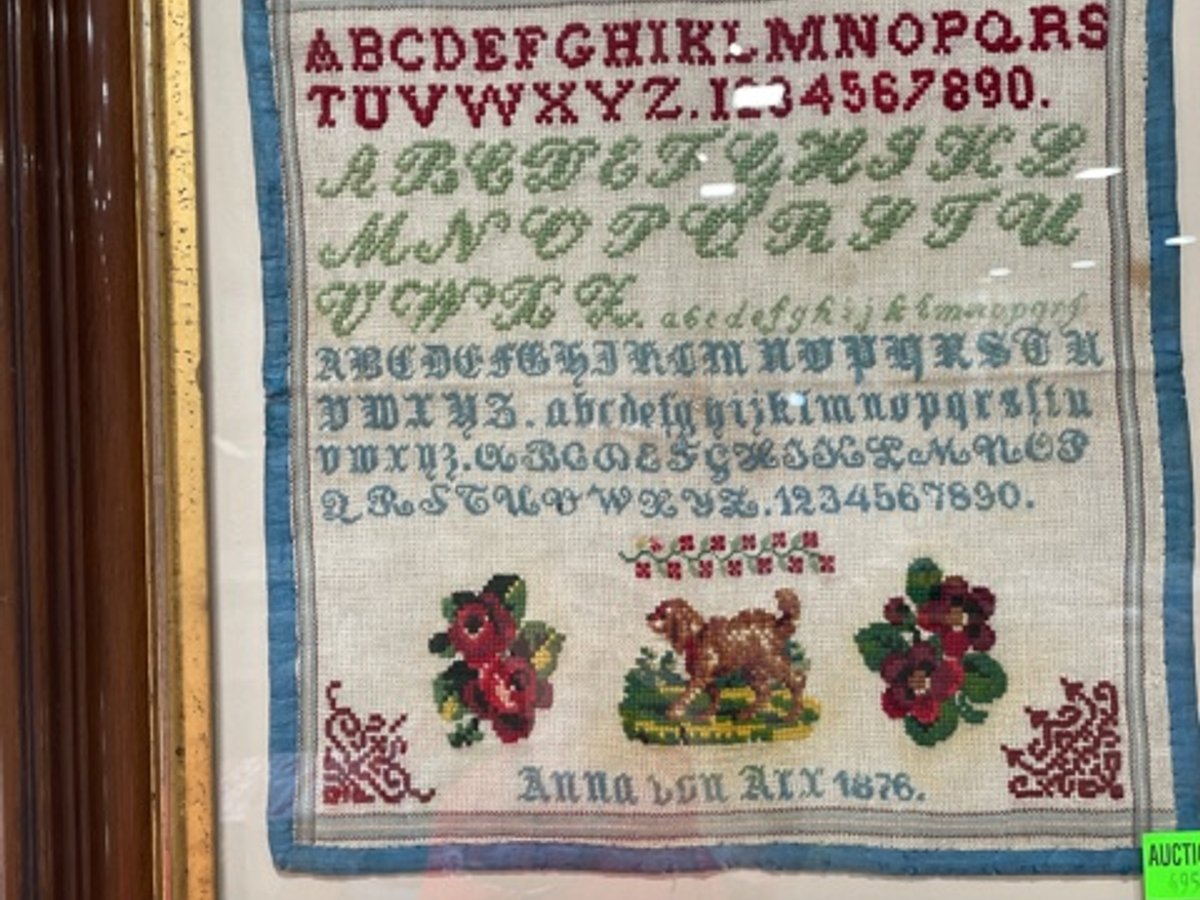 ABCDEFGHIKLMNOPQRS
TUVWXYZ.1234567890.
ABCDEFGHIKL
MNOPQRSTU
VWXZ. abcdefghijklmnopqrs
ABCDEFGHIKLMNOPQRSTU
VWXYZ. abcdefghijklmnopqrsſtu
vwxyz.ABCDEFGHIKLMNOP
QRSTUVWXYZ.1234567890.
Anna von Arx 1876.
AUCTI
695